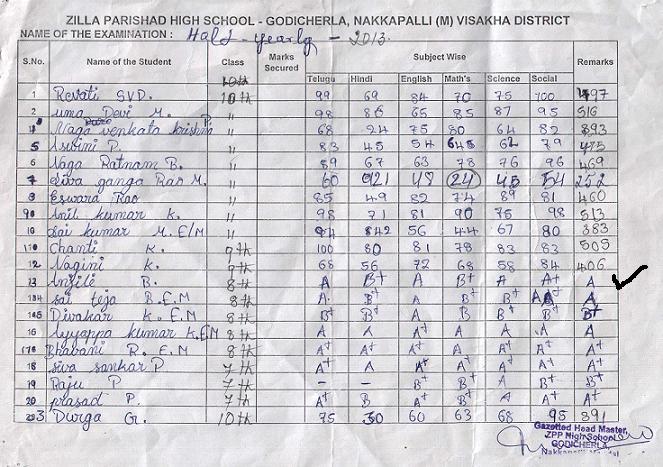 ZILLA PARISHAD HIGH SCHOOL - GODICHERLA, NAKKAPALLI (M) VISAKHA DISTRICT
NAME OF THE EXAMINATION : Half - yearly - 2013.
S.No. Name of the Student Class Marks Secured Subject Wise Remarks
Telugu Hindi English Math's Science Social
1 Revati S.V.D. 10th 99 69 84 70 75 100 497
2 uma Devi M. " 98 86 65 85 87 95 516
Naga venkata krishna P. " 68 24 75 80 64 82 393
5 Asvini P. " 83 45 54 62 79
6 Naga Ratnam B. " 89 67 63 78 76 96 469
7 Siva ganga Rao M. " 60 21 48 24 45 54 252
8 Eswara Rao " 85 49 82 74 89 81 460
Anil kumar K. " 98 71 81 90 75 98 513
10 Sai kumar M. E/M " 94 42 56 44 67 80 383
Chanti K. 9th 100 80 81 78 83 83 505
12 Nagini K. 9th 68 56 72 68 58 84 406
13 Anjili B. 8th A B+ A B+ A A+ A
Sai teja B.E.M 8th A B+ A B+ B+ A A
Divakar K. E.M 8th B+ B+ A B B+ B+ B+
Ayyappa kumar K.E.M 8th A A A+ A A A A
Bhavani R. E.M 8th A+ A+ A+ A A+ A+ A+
18 Siva sankar P 7th A+ A A+ A+ A+ A+ A+
19 Raju P 7th - - B+ B+ A B+ B+
20 prasad P. 7th A B A A A+ A+
Durga G. 10th 75 30 60 63 68 95 391
Gazetted Head Master,
ZPP High School
GODICHERLA,